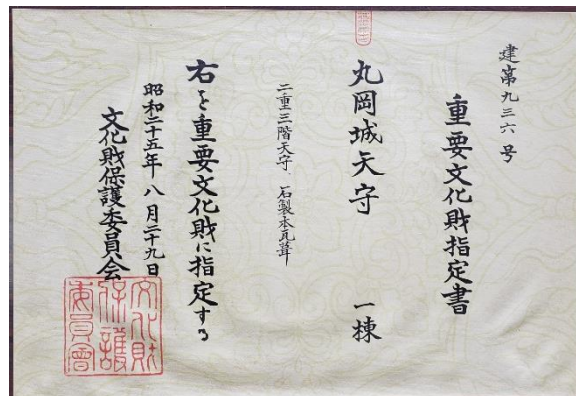 建第九三六号
重要文化財指定書
丸岡城天守 一棟
二重三階天守、石製本瓦葺
右を重要文化財に指定する
昭和二十五年八月二十九日
文化財保護委員会
文化財
保護
委員會